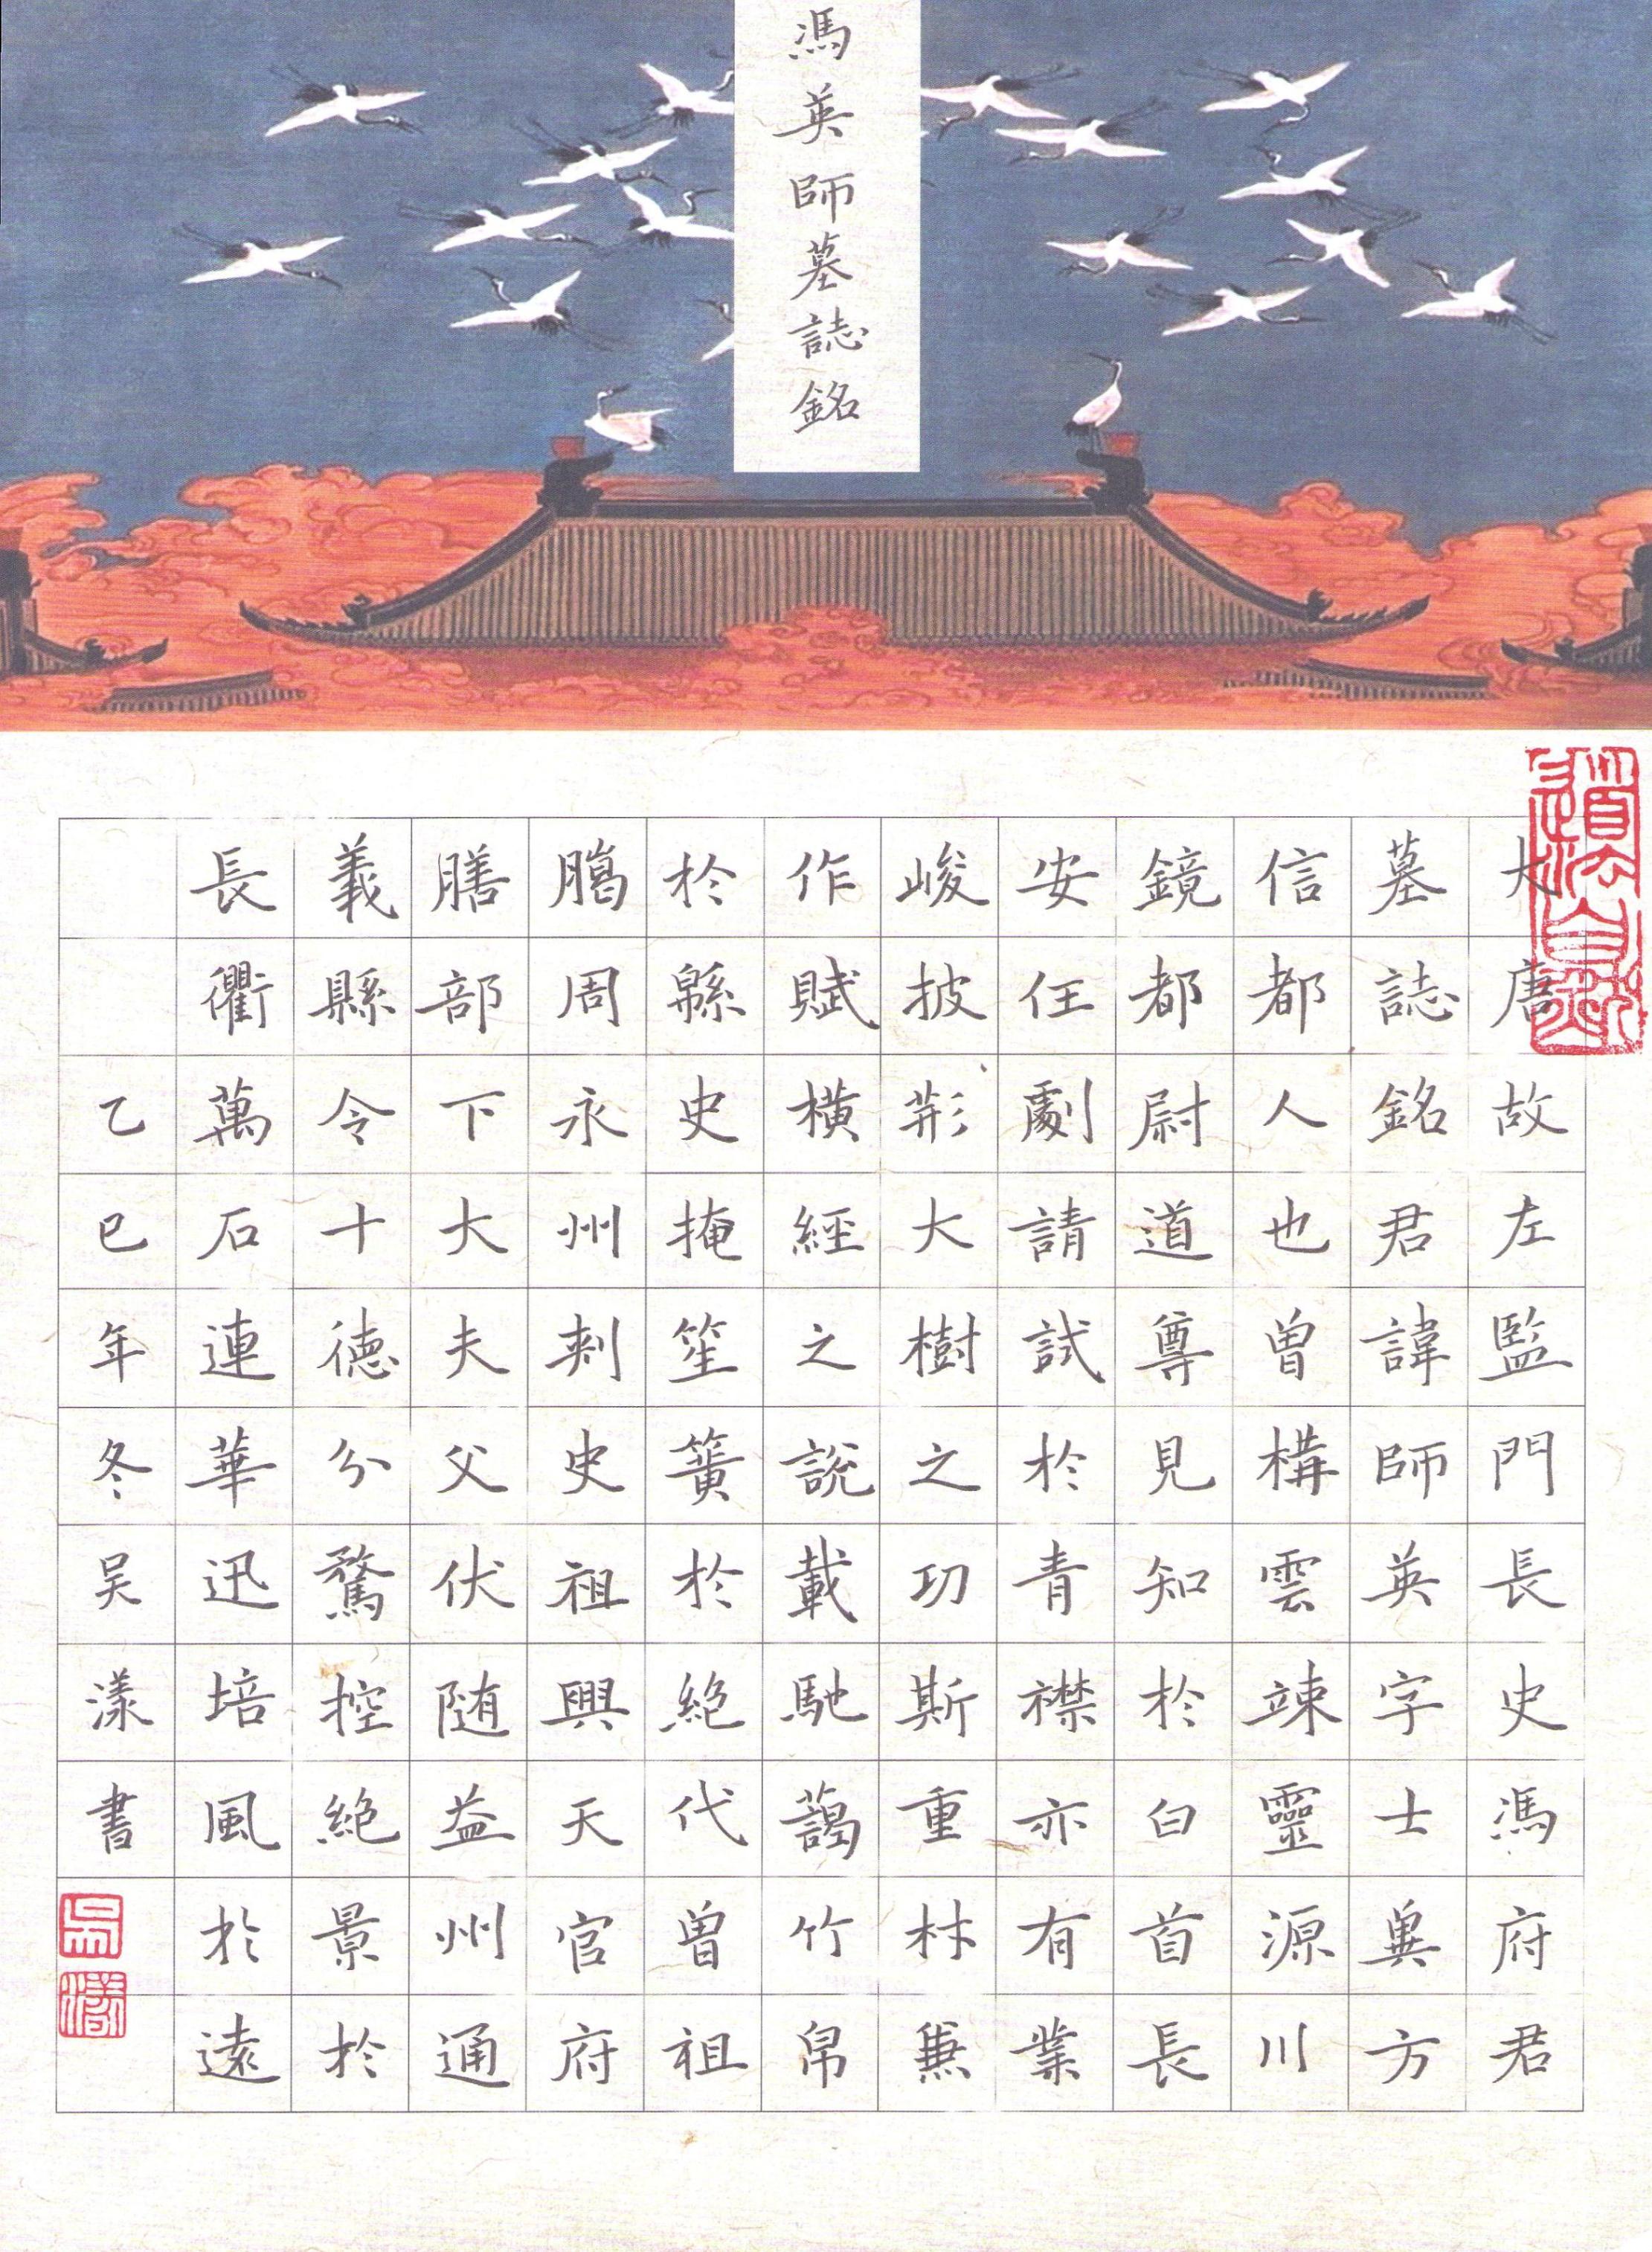 馮英師墓誌銘
大唐故左監門長史馮府君
墓誌銘君諱師英字士兾方
信都人也曾構雲竦靈源川
鏡都尉道尊見知於白首長
安任劇請試於青襟亦有業
峻披荊大樹之功斯重材兼
作賦橫經之說載馳藹竹帛
於緜史掩笙簧於絕代曾祖
鵰周永州刺史祖興天官府
膳部下大夫父伏随益州通
義縣令十德分騖控絕景於
長衢萬石連華迅培風於遠
乙巳年冬吴漾書